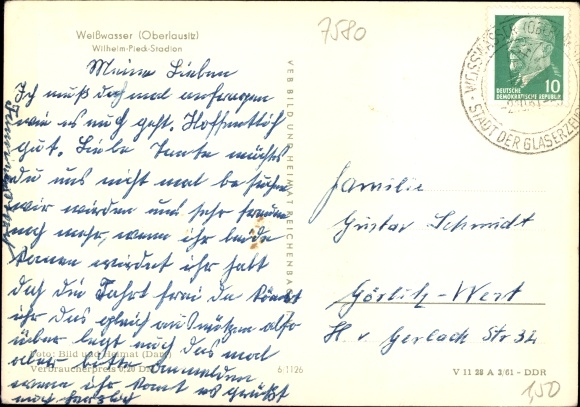 Weißwasser (Oberlausitz)
Wilhelm-Pieck-Stadion
7580
Meine Lieben
Ich muß doch mal anfragen
wie es euch geht. Hoffentlich
gut. Liebe Tante möchtes
du uns nicht mal besuchen
wir würden uns sehr freuen
noch mehr, wenn ihr beide
kommen würdet ihr habt
doch die Fahrt frei da könnt
ihr das gleich ausnützen also
über legt euch das mal
aber bitte anmelden
wenn ihr komt es grüßt
euch herzlich
Foto: Bild und Heimat (Darr)
Verbraucherpreis 0,20 D
6/1126
VEB BILD UND HEIMAT REICHENBACH
DEUTSCHE
DEMOKRATISCHE REPUBLIK
10
WEISSWASSER (OBERL
STADT DER GLASERZEU
Familie
Gustav Schmidt
Görlitz-West
H. v. Gerlach Str 32
V 11 28 A 3/61 - DDR
1,50